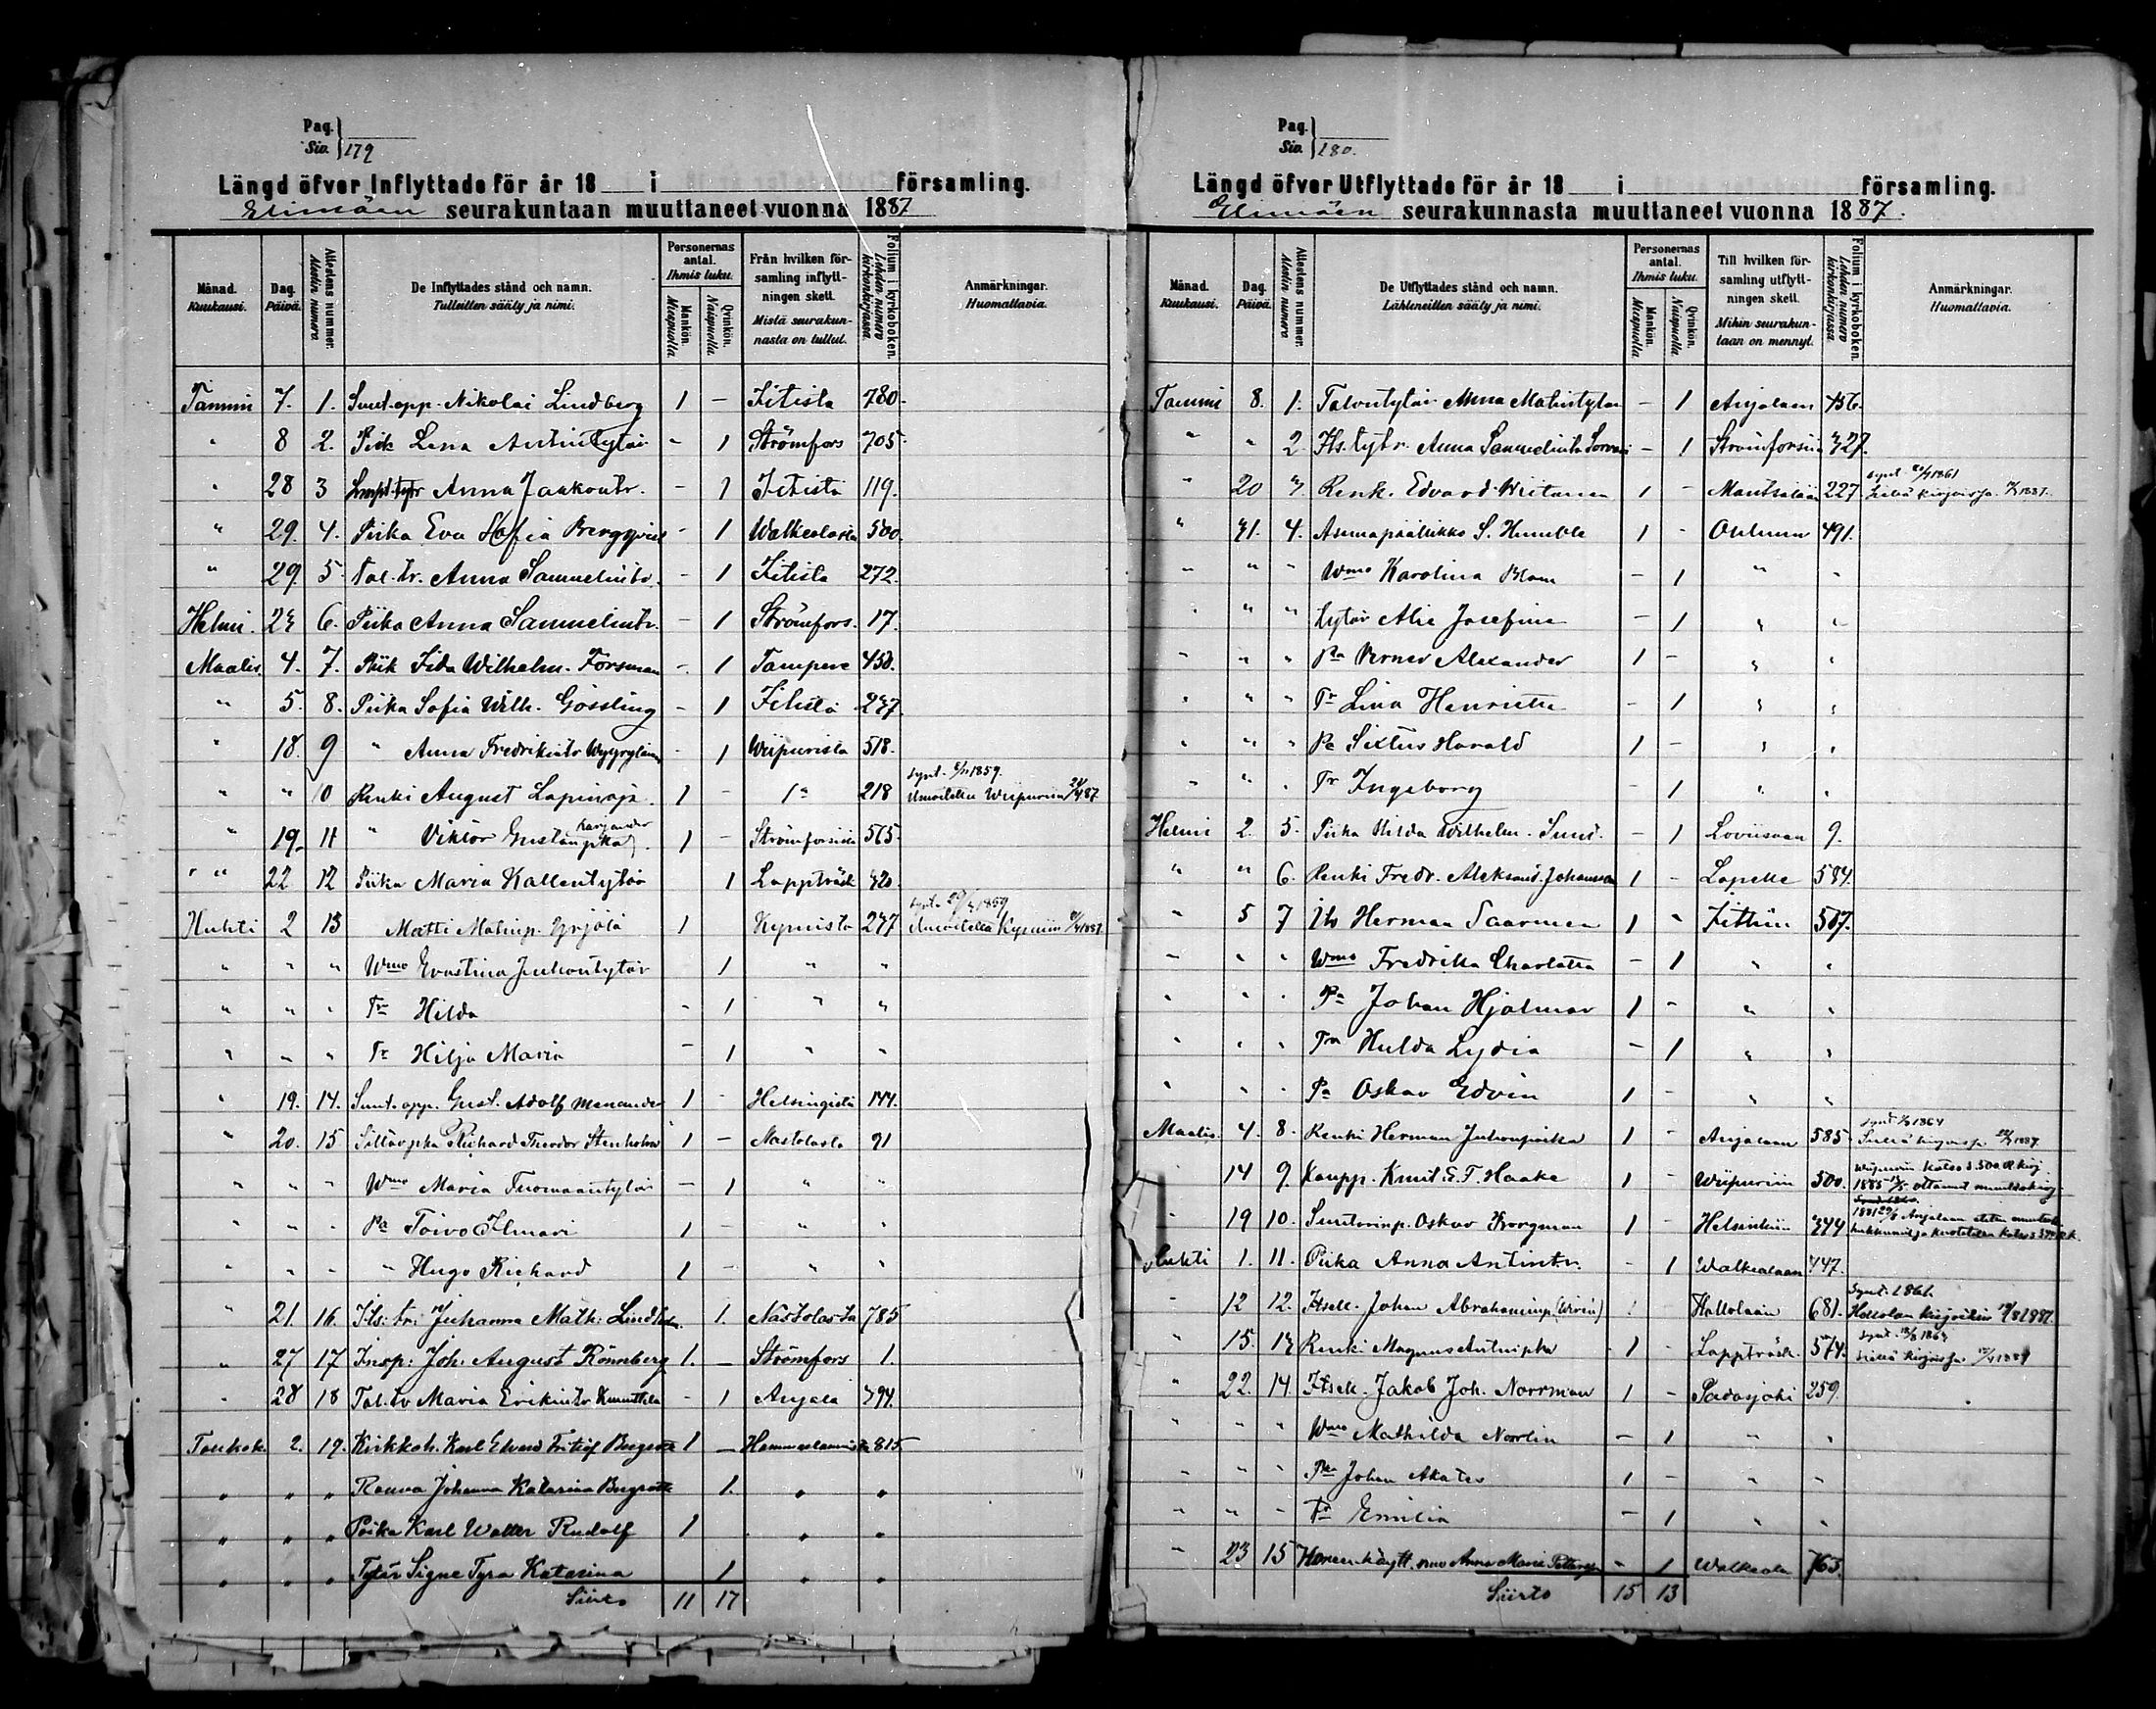 Pag.
Siv. 179
Längd öfver Inflyttade för år 18 i församling.
Elimäen seurakuntaan muuttaneet vuonna 1887
Månad. Kuukausi.
Dag. Päivä.
Attestens nummer. Alestin numero
De Inflyttades stånd och namn. Tulleitten sääty ja nimi.
Personernas antal. Ihmis luku.
Mankön. Miespuolia
Qvinkön. Naispuolia
Från hvilken församling inflyttningen skett. Mistä seurakunnasta on tullut.
Folium i kyrkoboken. Lehden numero kirkonkirjassa.
Anmärkningar. Huomattavia.
Tammi 7. 1. Nikolai Lindberg 1 - Iitistä 780.
" 8 2. Piik Lena Antintytär - 1 Strömfors 705
" 28 3 Anna Jaakontr. - 1 Iitistä 119.
" 29. 4. Piika Eva Sofia Bergqvist - 1 Walkealasta 500.
" 29. 5. Tal. tr. Anna Samuelintr. - 1 Iitistä 272.
Helmi. 23 6. Piika Anna Samuelintr. - 1 Strömfors. 17.
Maalis. 4. 7. Piik Fida Wilhelm. Forsman - 1 Tampere 450.
" 5. 8. Piika Sofia Wilh. Gössling - 1 Iitistä 237.
" 18. 9 " Anna Fredrikintr - 1 Wiipurista 518.
" " 10 Renki August Lapinoja. 1 - 1" 218 synt. 1859. Wiipuriin
" 19. 11 " Viktor 1 - 565.
" " 22 12 Piika Maria Kallentytär 1 Lappträsk 320.
Huhti 2 13 Matti Matinp. Yrjölä 1 Kymistä 237 synt. 1859
" " " Wmo Evastina Juhontytär 1 " "
" " " Tr Hilda - 1 " "
" " " Tr Hilja Maria - 1 " "
" 19. 14. Gust. Adolf Menander 1 - Helsingistä 144.
" 20. 15 Richard Theodor Stenholm 1 - Nastolasta 91
" " " Wmo Maria Tuomaantytär - 1 " "
" " " Pa Toivo Ilmari 1 - " "
" " " " Hugo Richard 1 - " "
" 21. 16. Its. tr. Juhanna Math. 1. Nastolasta 785
" 27 17 Insp: Joh. August Rönnberg 1. - Strömfors 1.
" 28 18 Tal. tr Maria Erikintr - 1 Anjala 394.
Toukok. 2. 19. Kirkkoh. Karl 1 - 815
" " " Rouva Johanna Katarina 1. " "
" " " Poika Karl Walter Rudolf 1 " "
" " " Tytär Signe Tyra Katarina 1 " "
Siirto 11 17
Pag.
Siv. 180.
Längd öfver Utflyttade för år 18 i församling.
Elimäen seurakunnasta muuttaneet vuonna 1887.
Månad. Kuukausi.
Dag. Päivä.
Attestens nummer. Alestin numero
De Utflyttades stånd och namn. Lähteneitten sääty ja nimi.
Personernas antal. Ihmis luku.
Mankön. Miespuolia
Qvinkön. Naispuolia
Till hvilken församling utflyttningen skett. Mihin seurakuntaan on mennyt.
Folium i kyrkoboken. Lehden numero kirkonkirjassa.
Anmärkningar. Huomattavia.
Tammi 8. 1. Talontytär Anna Matintytär - 1 Anjalaan 456.
" " 2. Its. tytr. Anna Samuelintr - 1 Strömforsiin 327.
" 20 3. Renk. Edvard Wiitanen 1 - Mäntsälään 227 synt 1861
" 31. 4. Asemapäällikkö S. Humble 1 - Ouluun 491.
" " " Wmo Karolina Blom - 1 " "
" " " tytär Alie Josefina - 1 " "
" " " Pa Verner Alexander 1 - " "
" " " Tr Lina Henrietta - 1 " "
" " " Pa Sixtus Harald 1 - " "
" " " Tr Ingeborg - 1 " "
Helmi 2. 5. Piika Hilda Wilhelm. Sund. - 1 Loviisaan 9.
" " 6. Renki Fredr. Aleksand. Johansson 1 - Lapelle 584.
" 5 7 Its Herman Saarinen 1 " Iittiin 507.
" " " Wmo Fredrika Charlotta - 1 " "
" " " Pa Johan Hjalmar 1 - " "
" " " Tr Hulda Lydia - 1 " "
" " " Pa Oskar Edvin 1 - " "
Maalis. 4. 8. Renki Herman Juhonpoika 1 - Anjalaan 585 synt 1864
" 14 9. Kaupp. Knut E. F. Haake 1 - Wiipuriin 500. 1885 ottanut
" 19 10. Oskar 1 - Helsinkiin 344 1881 Anjalaan
Huhti 1. 11. Piika Anna Antintr. - 1 Walkealaan 447.
" 12 12. Itsell. Johan Abrahaminp. 1 - Hollolaan 681. Synt. 1861. Hollolan
" 15. 13 Renki Magnus Antinpka 1 - Lappträsk. 574. synt.
" 22. 14. Itsell. Jakob Joh. Norrman 1 - Padasjoki 259.
" " " Wmo Mathilda Norrlin - 1 " "
" " " Pka Johan 1 - " "
" " " Tr Emilia - 1 " "
" 23 15 Anna Maria - 1 Walkeala 763.
Siirto 15 13